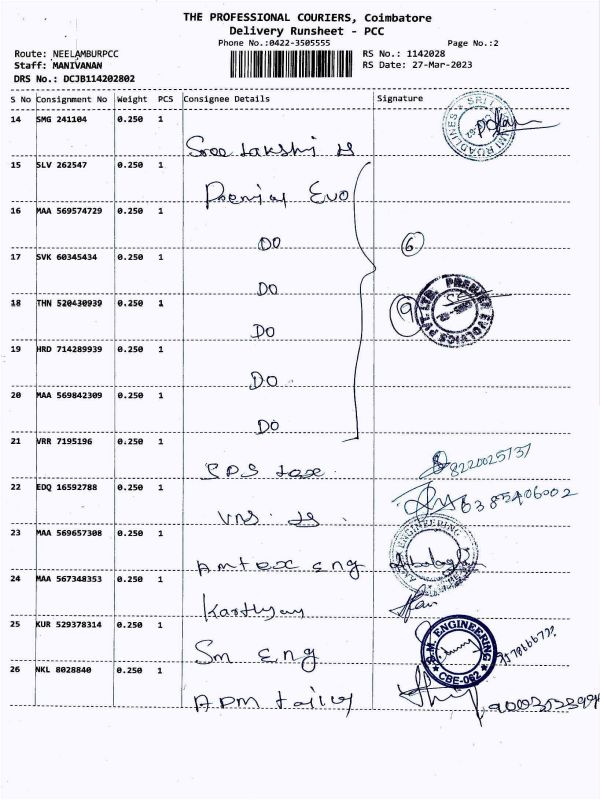 THE PROFESSIONAL COURIERS, Coimbatore
Delivery Runsheet - PCC
Phone No.:0422-3505555 Page No.:2
Route: NEELAMBURPCC RS No.: 1142028
Staff: MANIVANAN RS Date: 27-Mar-2023
DRS No.: DCJB114202802
S No Consignment No Weight PCS Consignee Details Signature
14 SMG 241104 0.250 1
Sree Lakshmi
15 SLV 262547 0.250 1
Premier Evo
16 MAA 569574729 0.250 1
DO 6
17 SVK 60345434 0.250 1
DO
18 THN 520430939 0.250 1
DO 9
PREMIER EVOLVICS PVT LTD.
19 HRD 714289939 0.250 1
DO
20 MAA 569842309 0.250 1
DO
21 VRR 7195196 0.250 1
SPS tex 8220025737
22 EDQ 16592788 0.250 1
VNS 6385406002
23 MAA 569657308 0.250 1
Amtex eng
ENGINEERING
24 MAA 567348353 0.250 1
25 KUR 529378314 0.250 1
Sm Eng
S.M. ENGINEERING
CBE-062
26 NKL 8028840 0.250 1